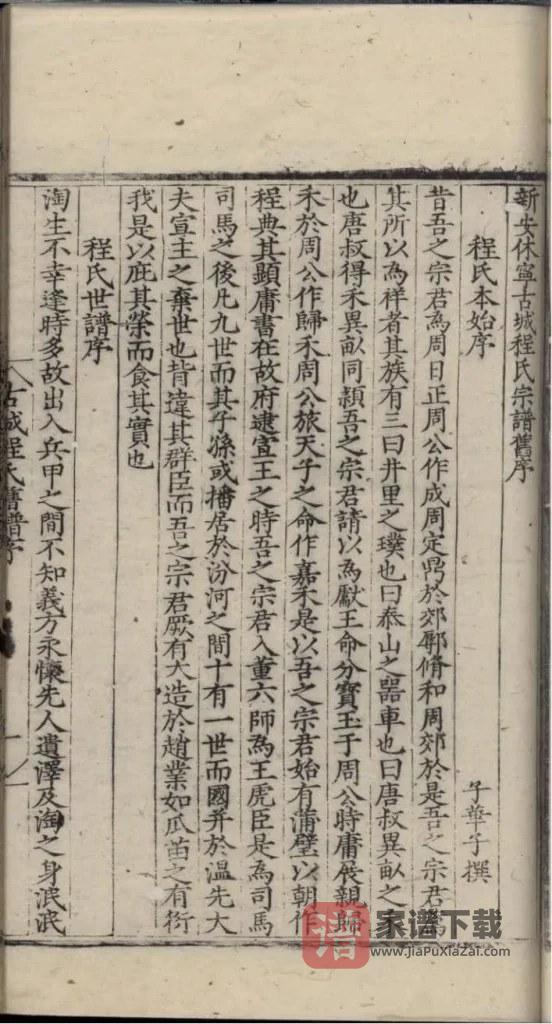 新安休寧古城程氏宗譜舊序
程氏本始序
子華子撰
昔吾之宗君為周日正周公作成周定鼎於郊鄏脩和周郊於是吾之宗君
其所以為祥者其族有三曰井里之璞也曰泰山之器車也曰唐叔異畝之
也唐叔得禾異畝同穎吾之宗君請以為獻王命分寶玉于周公時庸展親歸
禾於周公作歸禾周公旅天子之命作嘉禾是以吾之宗君始有蒲璧以朝作
程典其顯庸書在故府逮宣王之時吾之宗君入董六師為王虎臣是為司馬
司馬之後凡九世而其子孫或播居於汾河之間十有一世而國并於溫先大
夫宣主之棄世也背違其群臣而吾之宗君厥有大造於趙業如瓜苗之有衍
我是以庇其榮而食其實也
程氏世譜序
淘生不幸逢時多故出入兵甲之間不知義方永懷先人遺澤及淘之身泯泯
古城程氏舊譜序
一
譜
家谱下载
www.jiaPuxiaZai.com